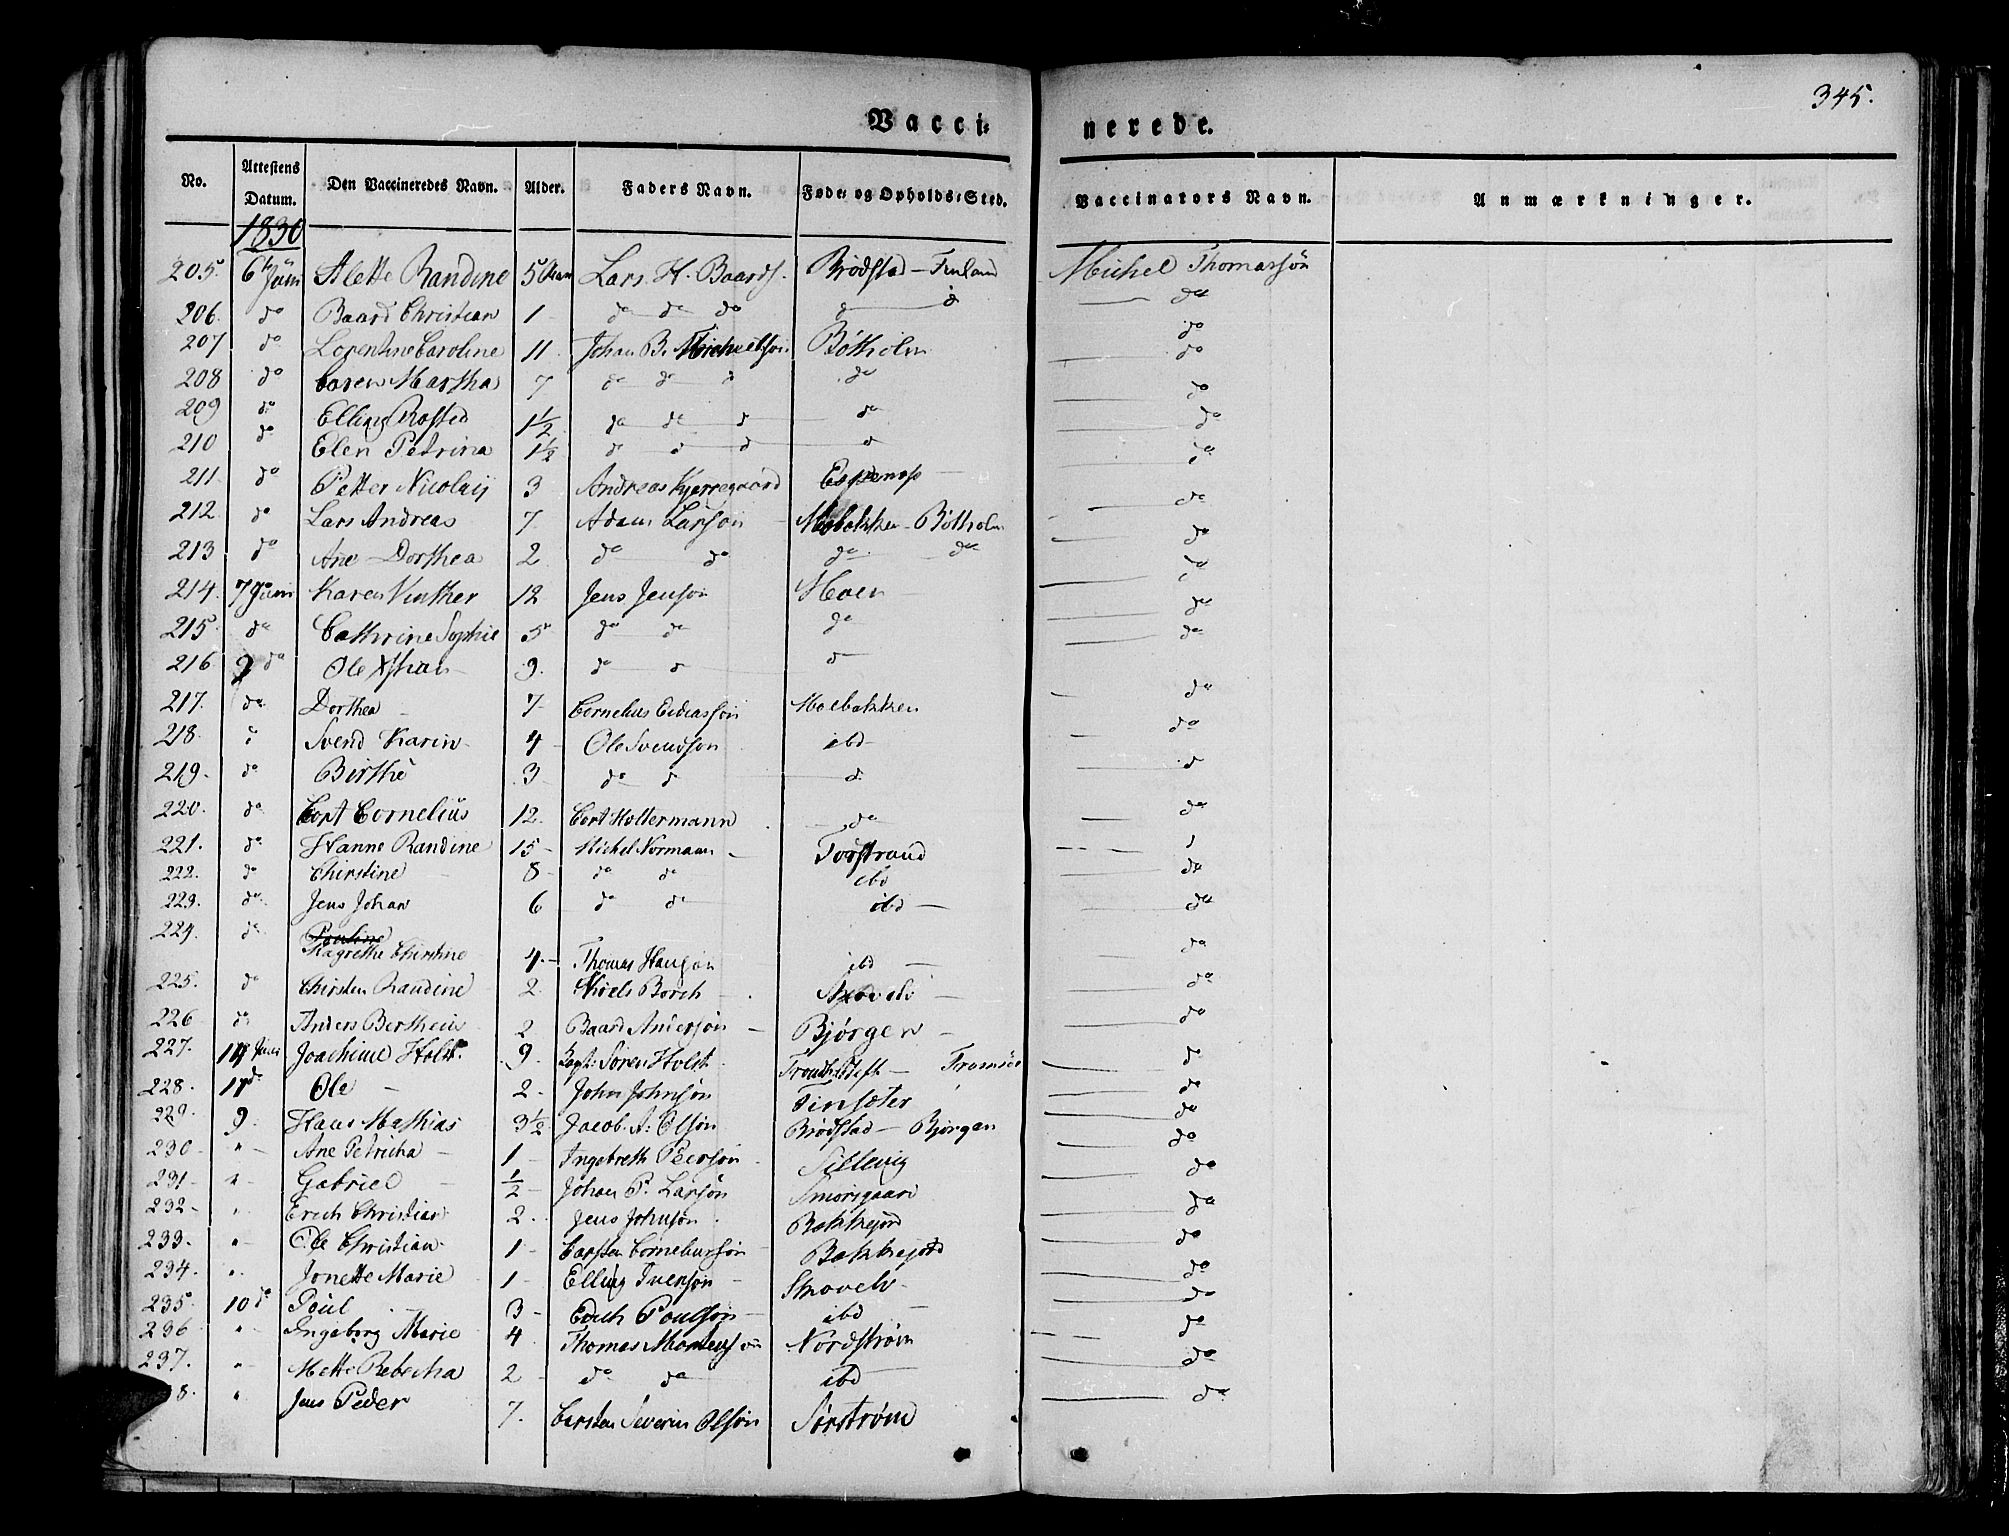 345.
Vacci=
nerede.
No. Attestens Datum. Den Vaccineredes Navn. Alder. Faders Navn. Føde= og Opholds=Sted. Vaccinators Navn. Anmærkninger.
1830
205. 6te Juni Alette Randine 5 Lars H. Baards. Brodstad — Michel Thomassøn
206. do Baard Christian 1 do do do d d do
207 do Lorentine Caroline 11 Johan B. Michelsøn Botholm do
208 do Caren Martha 7 do do d do do
209 do Elling Rosted 1½ do do d do do
210 do Elen Petrina 1½ d d d d do
211 do Petter Nicolaij 3 Andreas Kjerregaard do
212. do Lars Andreas 7 Adam Larsøn Moebakken - Botholm do
213 do Ane Dorthea 2 do do do do do
214. 7 Juni Karen Vinther 12 Jens Jensøn Moen do
215. do Cathrine Sophie 5 do do do do
216 9 do Ole 9. do d d do
217. do Dorthea 7 Cornelius Moebakken do
218. d Svend Karin 4 Ole Svendsøn ibd do
219. do Birthe 3 do d d. d
220. do Cort Cornelius 12. Cort Holtermann do do
221. do Hanne Randine 15 Michel Normann d
222. do Christine 8 do do ibd do
223. do Jens Johan 6 do do ibd — do
224. do Pauline
Magrethe Christine 4. Thomas Hansøn ibd — do
225. do Chirsten Randine 2. Niels Borch do
226 do Anders Bertheus 2 Baard Andersøn — Bjørgen — do
227. 14 Juni Joachime Holst. 9. Søren Holst — Tromsøe d
228. 11 d. Ole — 2. John Johnsøn Finsæter do
229. 9. Hans Mathias 3½ Jacob A. Olsøn Brodstad — Bjørgen do
230 " Ane Petricha 1 Ingebreth Pedersøn Sillevig do
231 " Gabriel ½ Johan P. Larsøn Smorsgaard do
232 " Erich Christian 2. Jens Johnsøn Bakkejord do
233. " Ole Christian 1 Carsten Corneliussøn Bakkejord do
234. " Jonette Marie 1 Elling Iversøn Skovelv do
235. 10 d Poul 3 Erich Poulsøn ibd — do
236 " Ingeborg Marie 4 Thomas Mortensøn Nordstrøm do
237. " Mette Rebecha 2 do do ibd do
8. " Jens Peder 7. Carsten Severin Olsøn Sørstrøm do